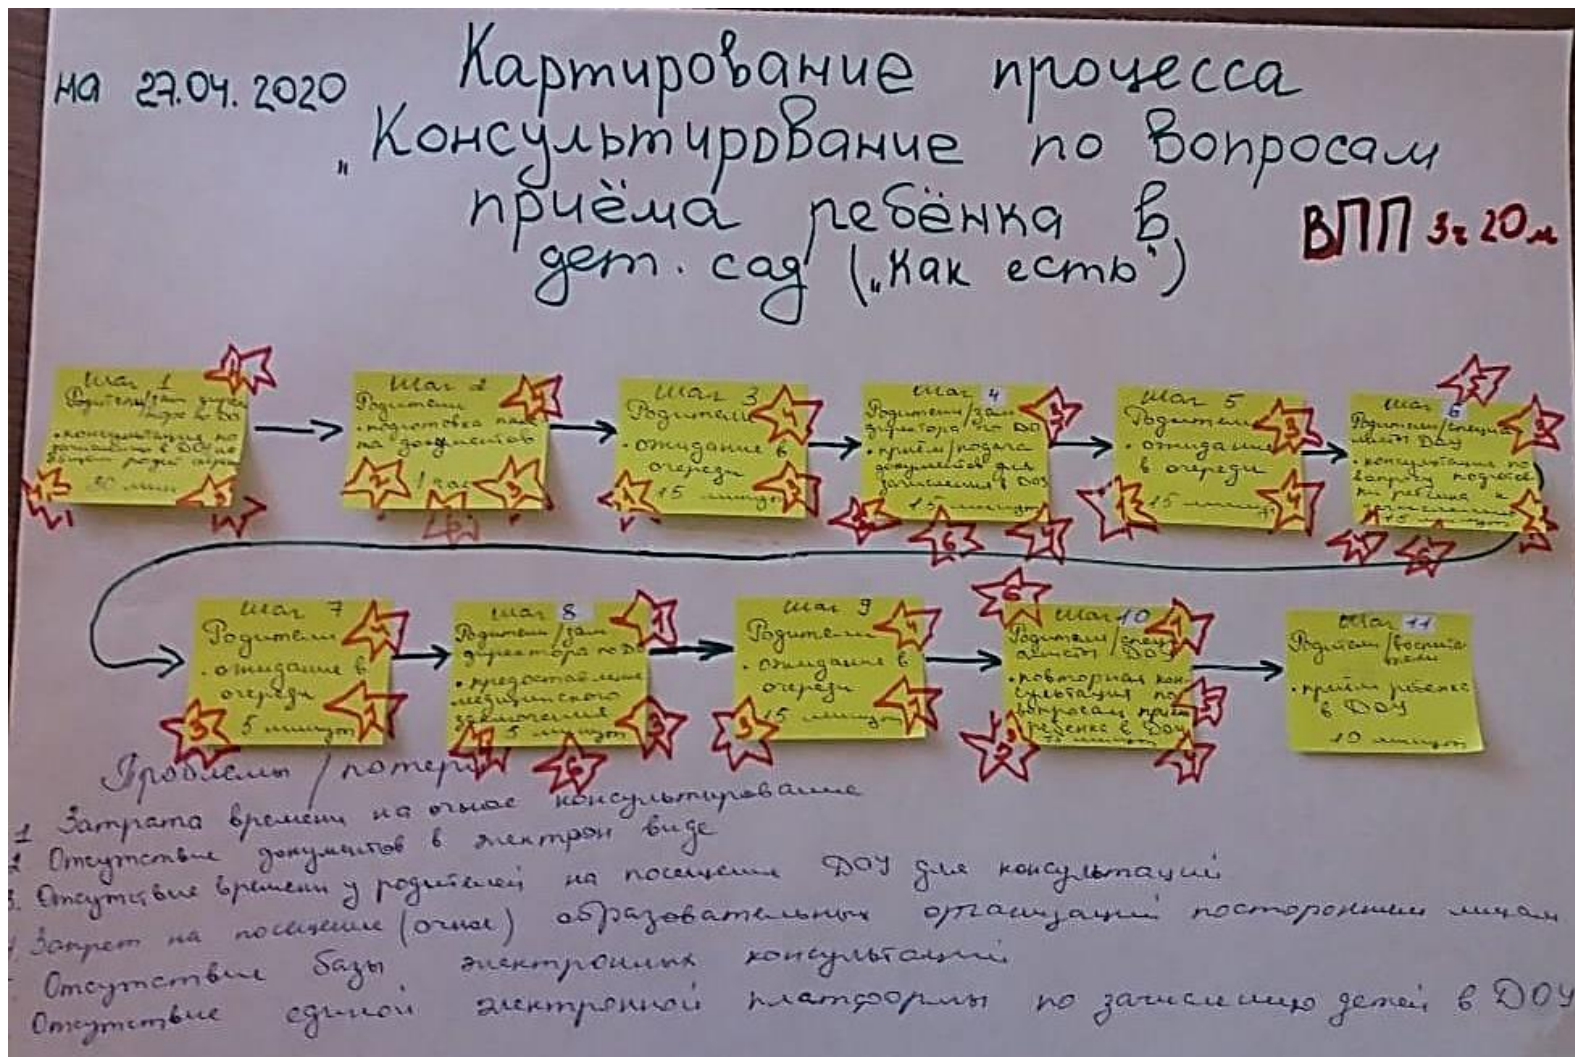 на 27.04.2020
Картирование процесса
„Консультирование по вопросам
приёма ребёнка в
дет. сад („Как есть“)
ВПП 3ч 20м
Шаг 1
Родители/зам дирек
тора по ДО
• консультация по
зачислению в ДОУ на
30 мин
Шаг 2
Родители
• подготовка паке
та документов
1 час
Шаг 3
Родители
• ожидание в
очереди
15 минут
Шаг 4
Родители/зам
директора по ДО
• приём/подача
документов для
зачисления в ДОУ
15 минут
Шаг 5
Родители
• ожидание
в очереди
15 минут
Шаг 6
Родители/специа
листы ДОУ
• консультация по
вопросу подготов
ки ребенка к
15 минут
Шаг 7
Родители
• ожидание в
очереди
5 минут
Шаг 8
Родители/зам
директора по ДО
• предоставление
медицинского
заключения
5 минут
Шаг 9
Родители
• ожидание в
очереди
15 минут
Шаг 10
Родители/специ
алисты ДОУ
• повторная кон
сультация по
вопросам приём
ребенка в ДОУ
минут
Шаг 11
Родители/воспита
тели
• приём ребенка
в ДОУ
10 минут
Проблемы/потери
1 Затрата времени на очное консультирование
2 Отсутствие документов в электрон виде
3. Отсутствие времени у родителей на посещение ДОУ для консультаций
4. Запрет на посещение (очное) образовательных организаций посторонним лицам
Отсутствие базы электронных консультаций
Отсутствие единой электронной платформы по зачислению детей в ДОУ